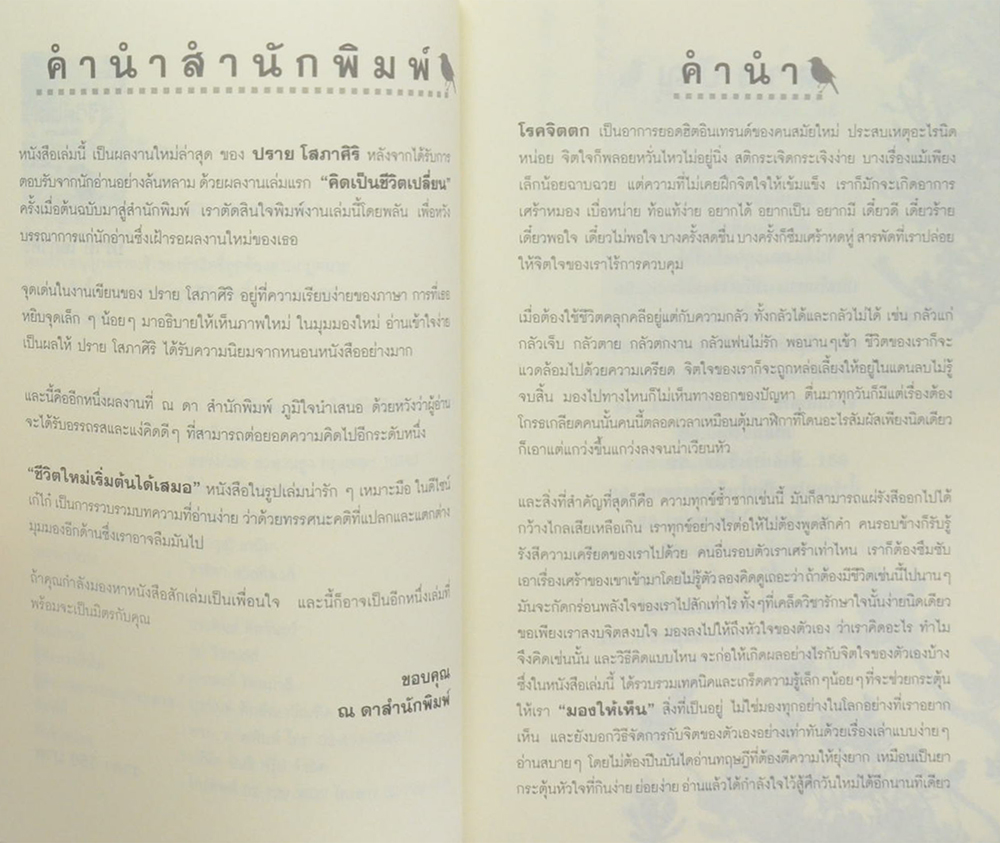 คำนำสำนักพิมพ์
หนังสือเล่มนี้ เป็นผลงานใหม่ล่าสุด ของ ปราย โสภาศิริ หลังจากได้รับการ
ตอบรับจากนักอ่านอย่างล้นหลาม ด้วยผลงานเล่มแรก “คิดเป็นชีวิตเปลี่ยน”
ครั้งเมื่อต้นฉบับมาสู่สำนักพิมพ์ เราตัดสินใจพิมพ์งานเล่มนี้โดยพลัน เพื่อหวัง
บรรณาการแก่นักอ่านซึ่งเฝ้ารอผลงานใหม่ของเธอ
จุดเด่นในงานเขียนของ ปราย โสภาศิริ อยู่ที่ความเรียบง่ายของภาษา การที่เธอ
หยิบจุดเล็ก ๆ น้อยๆ มาอธิบายให้เห็นภาพใหม่ ในมุมมองใหม่ อ่านเข้าใจง่าย
เป็นผลให้ ปราย โสภาศิริ ได้รับความนิยมจากหนอนหนังสืออย่างมาก
และนี้คืออีกหนึ่งผลงานที่ ณ ดา สำนักพิมพ์ ภูมิใจนำเสนอ ด้วยหวังว่าผู้อ่าน
จะได้รับอรรถรสและแง่คิดดีๆ ที่สามารถต่อยอดความคิดไปอีกระดับหนึ่ง
“ชีวิตใหม่เริ่มต้นได้เสมอ” หนังสือในรูปเล่มน่ารัก ๆ เหมาะมือ ในดีไซน์
เก๋ไก๋ เป็นการรวบรวมบทความที่อ่านง่าย ว่าด้วยทรรศนะคติที่แปลกและแตกต่าง
มุมมองอีกด้านซึ่งเราอาจลืมมันไป
ถ้าคุณกำลังมองหาหนังสือสักเล่มเป็นเพื่อนใจ และนี้ก็อาจเป็นอีกหนึ่งเล่มที่
พร้อมจะเป็นมิตรกับคุณ
ขอบคุณ
ณ ดาสำนักพิมพ์
คำนำ
โรคจิตตก เป็นอาการยอดฮิตอินเทรนด์ของคนสมัยใหม่ ประสบเหตุอะไรนิด
หน่อย จิตใจก็พลอยหวั่นไหวไม่อยู่นิ่ง สติกระเจิดกระเจิงง่าย บางเรื่องแม้เพียง
เล็กน้อยฉาบฉวย แต่ความที่ไม่เคยฝึกจิตใจให้เข้มแข็ง เราก็มักจะเกิดอาการ
เศร้าหมอง เบื่อหน่าย ท้อแท้ง่าย อยากได้ อยากเป็น อยากมี เดี๋ยวดี เดี๋ยวร้าย
เดี๋ยวพอใจ เดี๋ยวไม่พอใจ บางครั้งสดชื่น บางครั้งก็ซึมเศร้าหดหู่ สารพัดที่เราปล่อย
ให้จิตใจของเราไร้การควบคุม
เมื่อต้องใช้ชีวิตคลุกคลีอยู่แต่กับความกลัว ทั้งกลัวได้และกลัวไม่ได้ เช่น กลัวแก่
กลัวเจ็บ กลัวตาย กลัวตกงาน กลัวแฟนไม่รัก พอนานๆเข้า ชีวิตของเราก็จะ
แวดล้อมไปด้วยความเครียด จิตใจของเราก็จะถูกหล่อเลี้ยงให้อยู่ในแดนลบไม่รู้
จบสิ้น มองไปทางไหนก็ไม่เห็นทางออกของปัญหา ตื่นมาทุกวันก็มีแต่เรื่องต้อง
โกรธเกลียดคนนั้นคนนี้ตลอดเวลาเหมือนตุ้มนาฬิกาที่โดนอะไรสัมผัสเพียงนิดเดียว
ก็เอาแต่แกว่งขึ้นแกว่งลงจนน่าเวียนหัว
และสิ่งที่สำคัญที่สุดก็คือ ความทุกข์ซ้ำซากเช่นนี้ มันก็สามารถแผ่รังสีออกไปได้
กว้างไกลเสียเหลือเกิน เราทุกข์อย่างไรต่อให้ไม่ต้องพูดสักคำ คนรอบข้างก็รับรู้
รังสีความเครียดของเราไปด้วย คนอื่นรอบตัวเราเศร้าเท่าไหน เราก็ต้องซึมซับ
เอาเรื่องเศร้าของเขาเข้ามาโดยไม่รู้ตัว ลองคิดดูเถอะว่า ถ้าต้องมีชีวิตเช่นนี้ไปนานๆ
มันจะกัดกร่อนพลังใจของเราไปสักเท่าไร ทั้งๆที่เคล็ดวิชารักษาใจนั้นง่ายนิดเดียว
ขอเพียงเราสงบจิตสงบใจ มองลงไปให้ถึงหัวใจของตัวเอง ว่าเราคิดอะไร ทำไม
จึงคิดเช่นนั้น และวิธีคิดแบบไหน จะก่อให้เกิดผลอย่างไรกับจิตใจของตัวเองบ้าง
ซึ่งในหนังสือเล่มนี้ ได้รวบรวมเทคนิคและเกร็ดความรู้เล็กๆน้อยๆที่จะช่วยกระตุ้น
ให้เรา “มองให้เห็น” สิ่งที่เป็นอยู่ ไม่ใช่มองทุกอย่างในโลกอย่างที่เราอยาก
เห็น และยังบอกวิธีจัดการกับจิตของตัวเองอย่างเท่าทันด้วยเรื่องเล่าแบบง่ายๆ
อ่านสบายๆ โดยไม่ต้องปีนบันไดอ่านทฤษฎีที่ต้องตีความให้ยุ่งยาก เหมือนเป็นยา
กระตุ้นหัวใจที่กินง่าย ย่อยง่าย อ่านแล้วได้กำลังใจไว้สู้ศึกวันใหม่ได้อีกนานทีเดียว